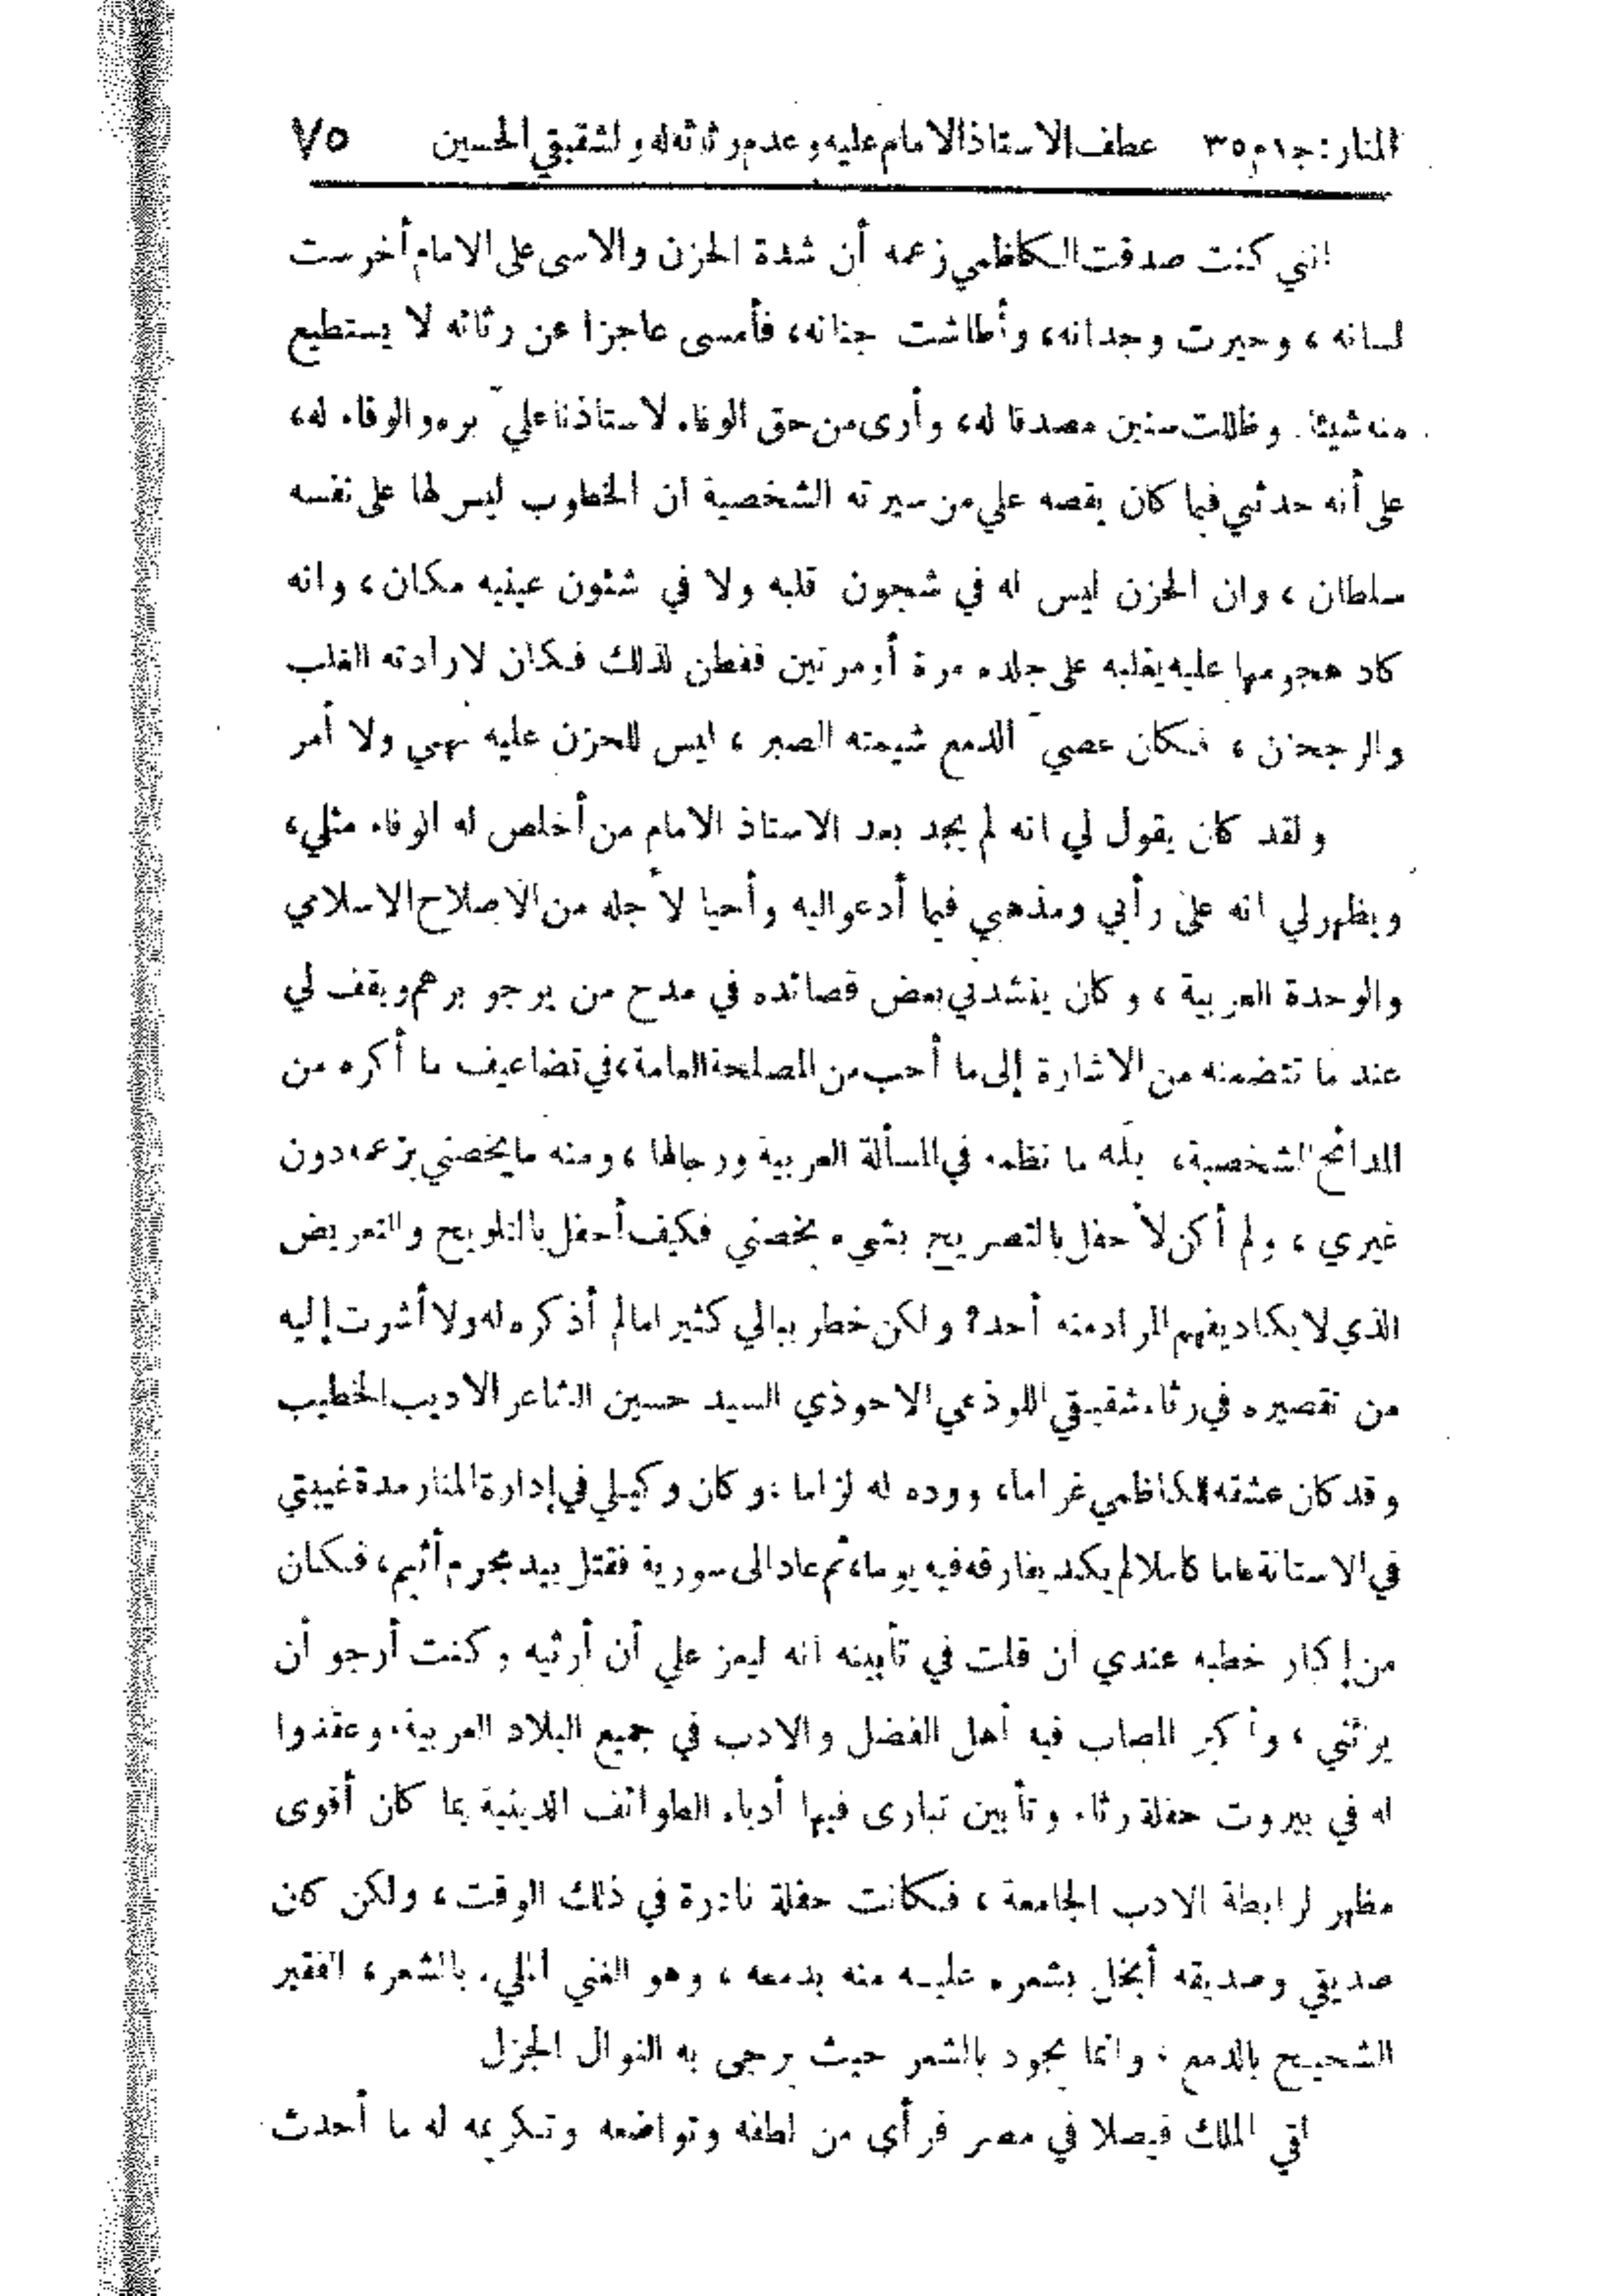 المنار: ج١م٣٥ عطف الاستاذ الامام عليه وعدم رثائه له ولشقيقي الحسين ٧٥
انني كنت صدقت الكاظمي زعمه أن شدة الحزن والاسى على الامام أخرست
لسانه ، وحيرت وجدانه، وأطاشت جنانه، فأمسى عاجزا عن رثائه لا يستطيع
منه شيئا. وظللت سنين مصدقا له، وأرى من حق الوفاء لاستاذنا عليّ بره والوفاء له،
على أنه حدثني فيما كان يقصه علي من سيرته الشخصية ان الخطوب ليس لها على نفسه
سلطان ، وان الحزن ليس له في شجون قلبه ولا في شئون عينيه مكان ، وانه
كاد هجومها عليه يغلبه على جلده مرة أو مرتين ففطن لذلك فكان لارادته الغلب
والرجحان ، فكان عصيّ الدمع شيمته الصبر ، ليس للحزن عليه نهي ولا أمر
ولقد كان يقول لي انه لم يجد بعد الاستاذ الامام من أخلص له الوفاء مثلي،
ويظهر لي انه على رأيي ومذهبي فيما أدعو اليه وأحيا لأجله من الاصلاح الاسلامي
والوحدة العربية ، وكان ينشدني بعض قصائده في مدح من يرجو برهم ويقف لي
عند ما تتضمنه من الاشارة إلى ما أحب من المصلحة العامة، في تضاعيف ما أكره من
المدائح الشخصية، بَلْه ما نظمه في المسألة العربية ورجالها ، ومنه ما يخصني بزعمه دون
غيري ، ولم أكن لأحفل بالتصريح بشيء يخصني فكيف أحفل بالتلويح والتعريض
الذي لا يكاد يفهم المراد منه أحد؟ ولكن خطر ببالي كثيرا ما لم أذكره له ولا أشرت إليه
من تقصيره في رثاء شقيقي اللوذعي الاحوذي السيد حسين الشاعر الاديب الخطيب
وقد كان عشقه الكاظمي غراما، ووده له لزاما ، وكان وكيلي في إدارة المنار مدة غيبتي
في الاستانة عاما كاملا لم يكد يفارقه فيه يوما، ثم عاد الى سورية فقتل بيد مجرم أثيم، فكان
من إكبار خطبه عندي ان قلت في تأبينه انه ليعز علي أن أرثيه وكنت أرجو أن
يرثني ، وأكبر المصاب فيه أهل الفضل والادب في جميع البلاد العربية، وعقدوا
له في بيروت حفلة رثاء وتأبين تبارى فيها أدباء الطوائف الدينية بما كان أقوى
مظهر لرابطة الادب الجامعة ، فكانت حفلة نادرة في ذلك الوقت ، ولكن كان
صديقي وصديقه أبخل بشعره عليه منه بدمعه ، وهو الغني المليء بالشعر، الفقير
الشحيح بالدمع ، وانما يجود بالشعر حيث يرجى به النوال الجزل
لقي الملك فيصلا في مصر فرأى من لطفه وتواضعه وتكريمه له ما أحدث